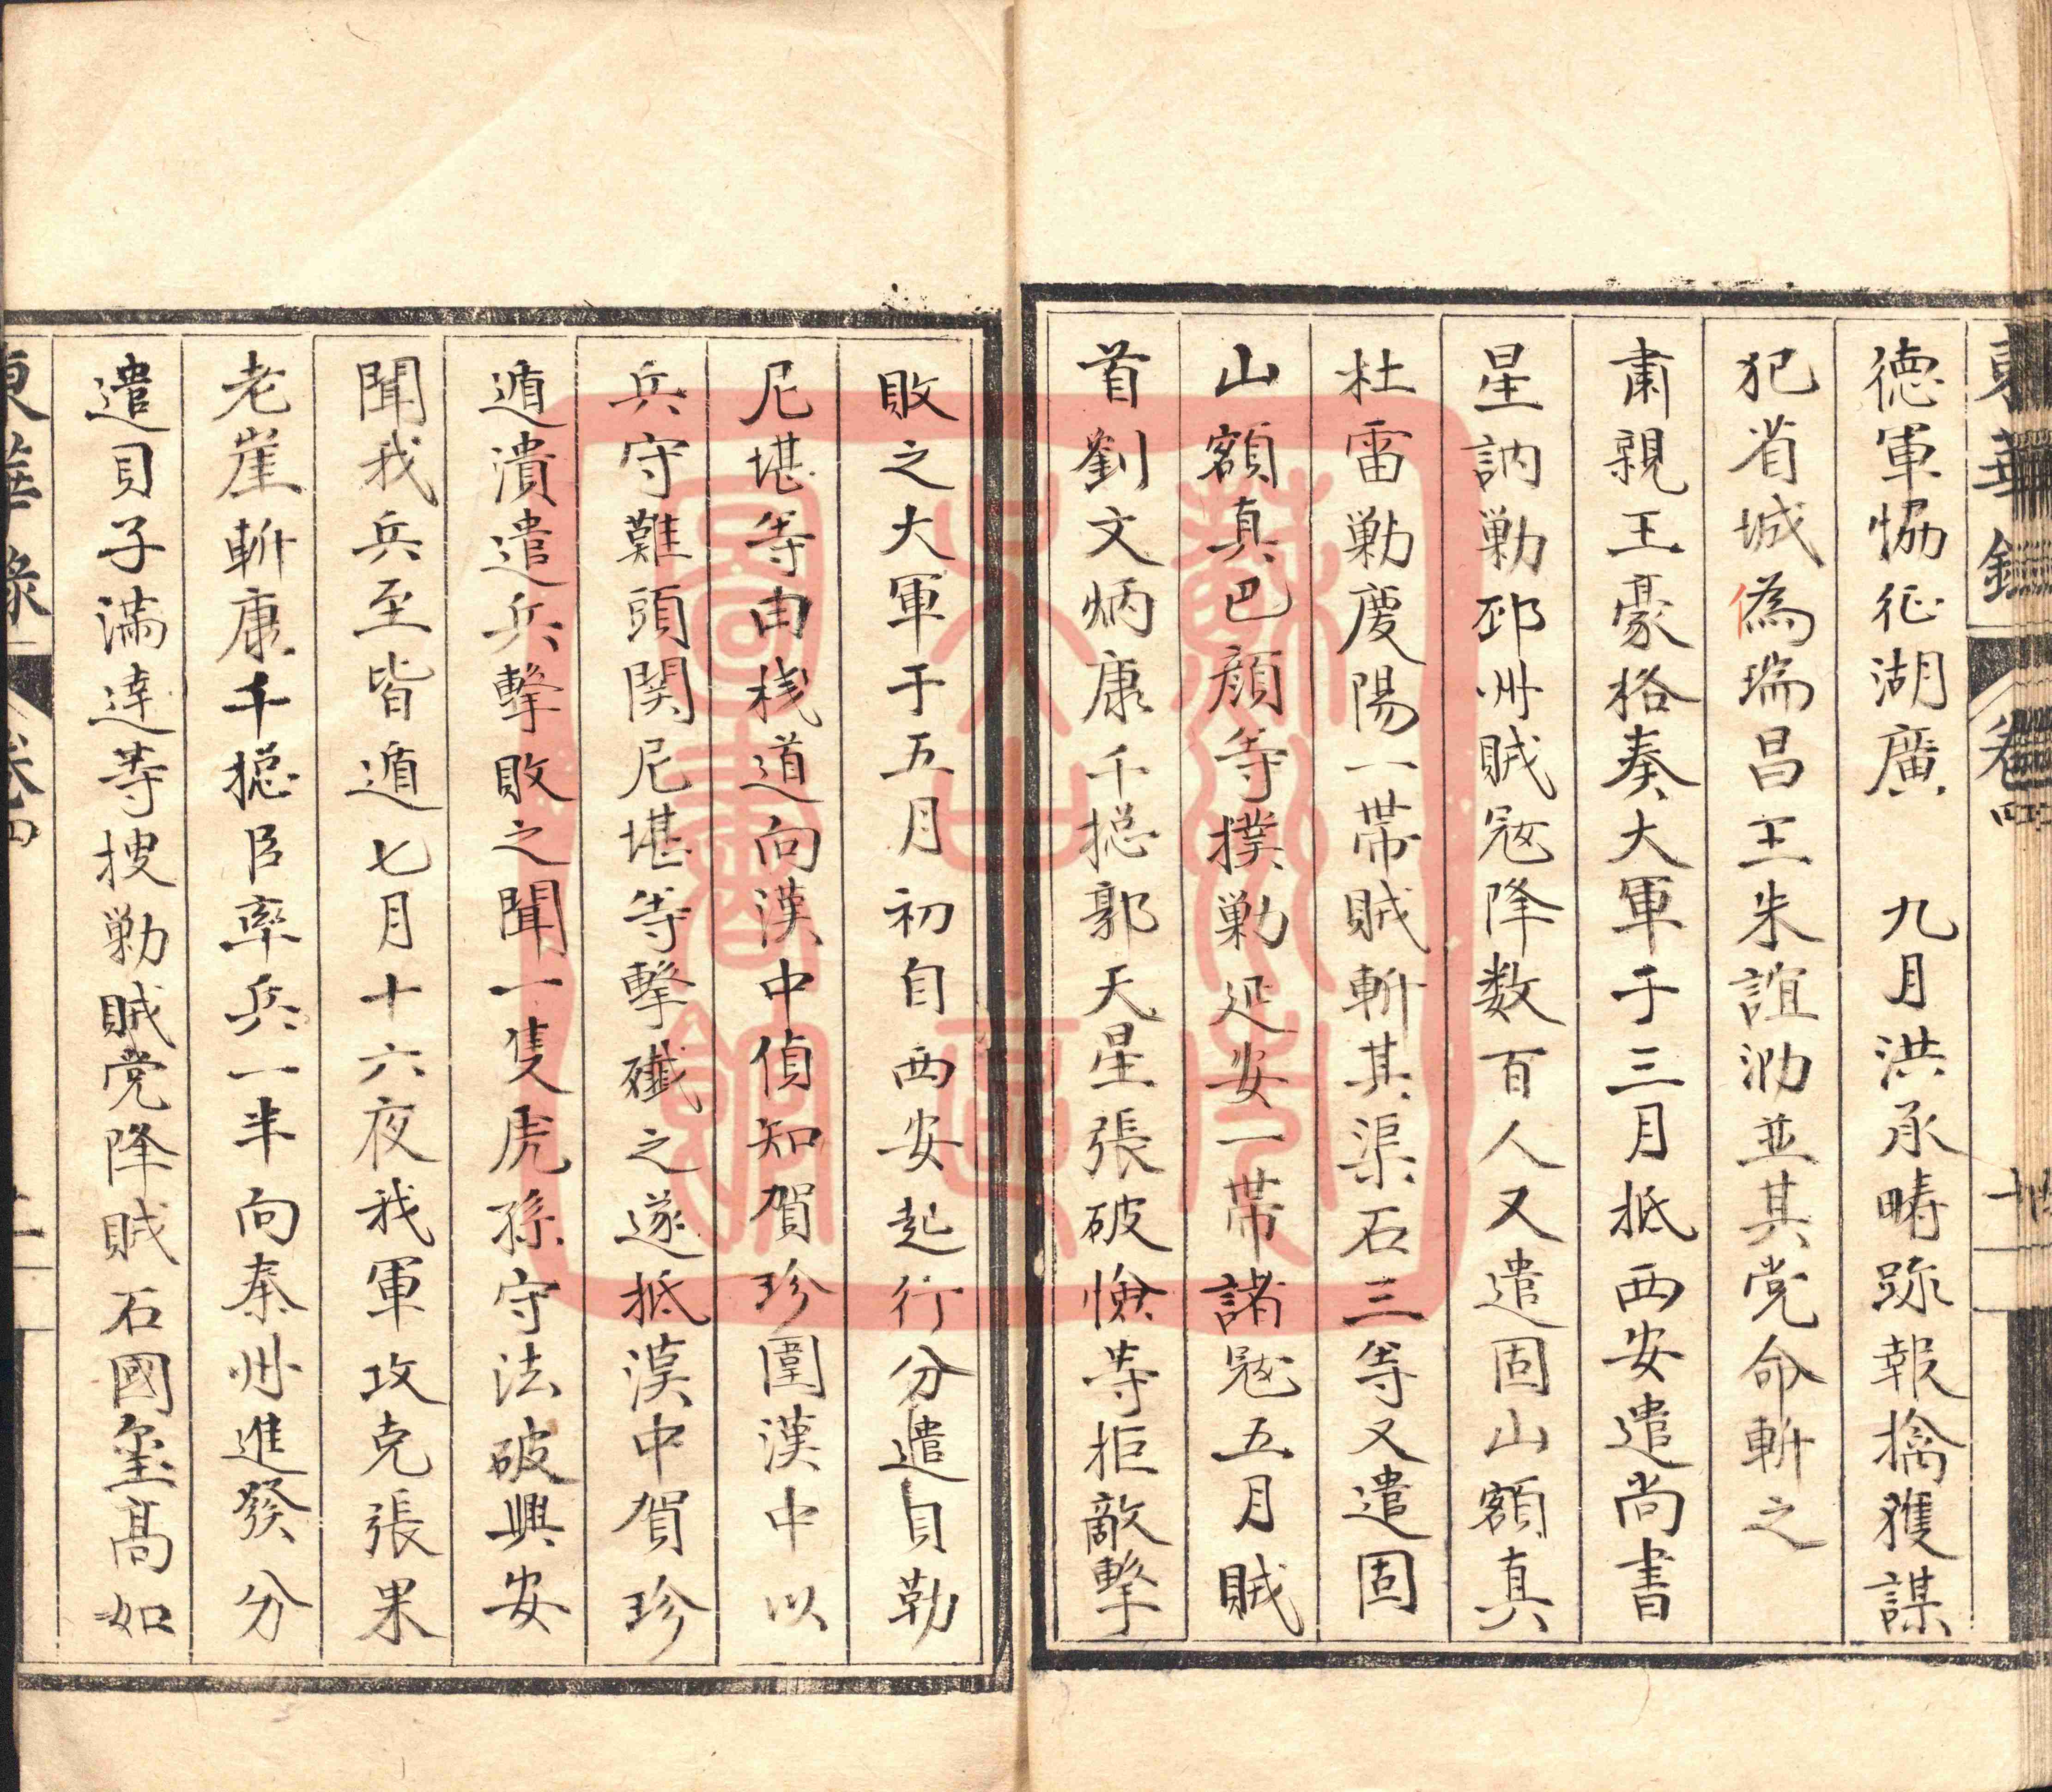 德軍恊征湖廣　九月洪承疇疏報擒獲謀
犯省城偽瑞昌王朱誼泐並其党命斬之
肅親王豪格奏大軍于三月抵西安遣尚書
星訥勦邠州賊冦降数百人又遣固山額真
杜雷勦慶陽一帶賊斬其渠石三等又遣固
山額真巴顔等撲勦延安一帶諸冦五月賊
首劉文炳康千摠郭天星張破臉等拒敵擊
敗之大軍于五月初自西安起行分遣貝勒
尼堪等由栈道向漢中偵知賀珍圍漢中以
兵守難頭関尼堪等擊殱之遂抵漢中賀珍
遁潰遣兵擊敗之聞一隻虎孫守法破興安
聞我兵至皆遁七月十六夜我軍攻克張果
老崖斬康千摠臣率兵一半向秦州進發分
遣貝子滿達等搜勦賊党降賊石國璽高如
東華錄
卷四
蘇州市
吳大
圖書館